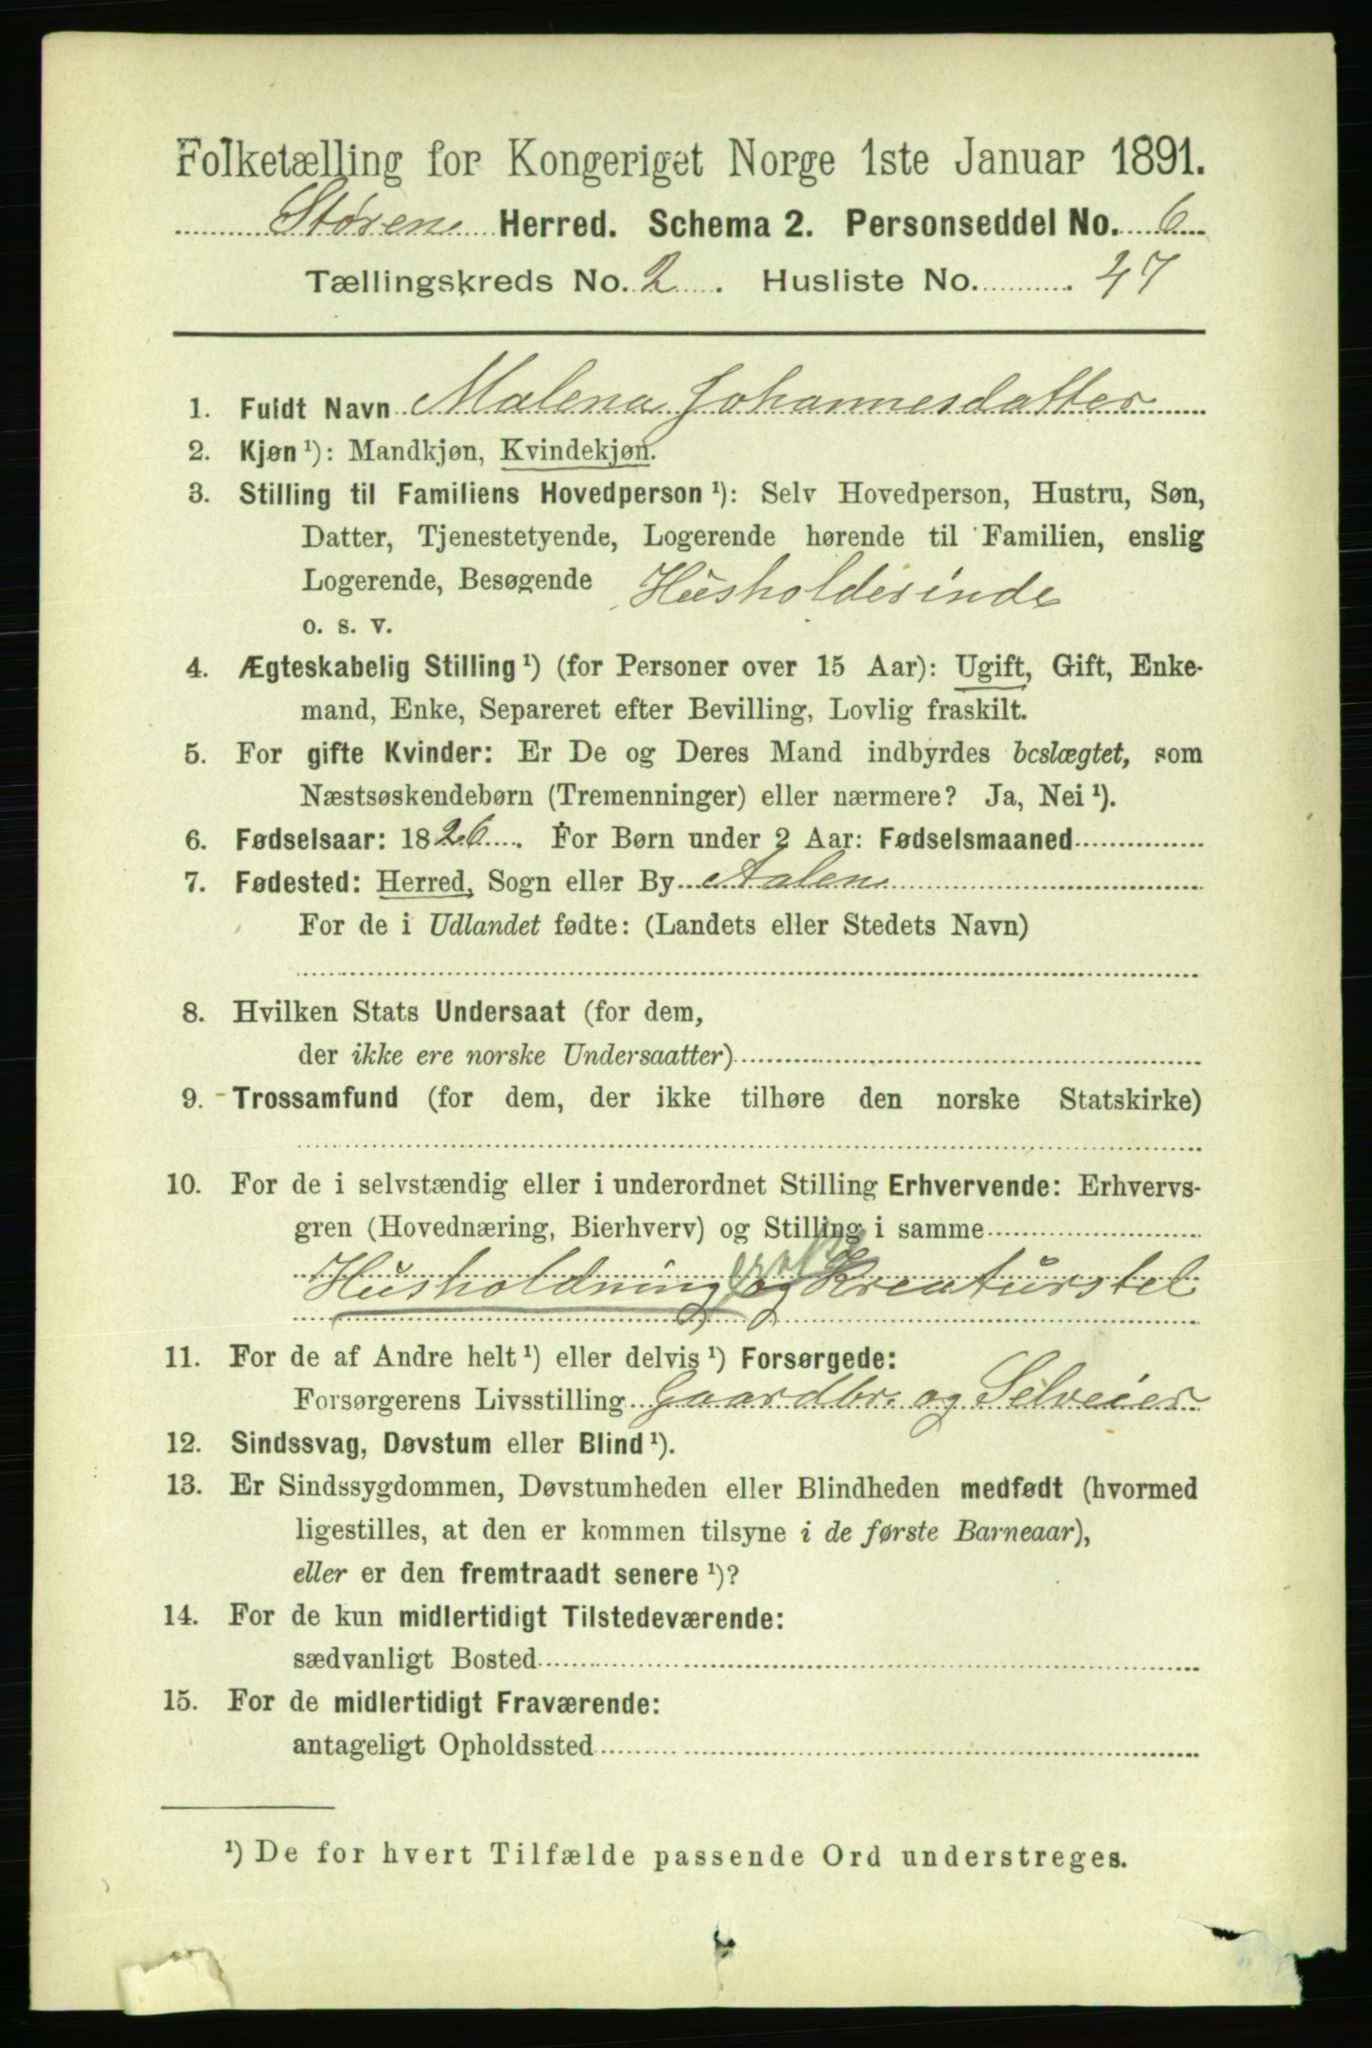 Folketælling for Kongeriget Norge 1ste Januar 1891.
Støren Herred. Schema 2. Personseddel No. 6
Tællingskreds No. 2. Husliste No. 47
1. Fuldt Navn Malena Johannesdatter
2. Kjøn ¹): Mandkjøn, Kvindekjøn.
3. Stilling til Familiens Hovedperson ¹): Selv Hovedperson, Hustru, Søn,
Datter, Tjenestetyende, Logerende hørende til Familien, enslig
Logerende, Besøgende Husholderinde
o. s. v.
4. Ægteskabelig Stilling ¹) (for Personer over 15 Aar): Ugift, Gift, Enke-
mand, Enke, Separeret efter Bevilling, Lovlig fraskilt.
5. For gifte Kvinder: Er De og Deres Mand indbyrdes beslægtet, som
Næstsøskendebørn (Tremenninger) eller nærmere? Ja, Nei ¹).
6. Fødselsaar: 1826. For Børn under 2 Aar: Fødselsmaaned
7. Fødested: Herred, Sogn eller By Aalen
For de i Udlandet fødte: (Landets eller Stedets Navn)
8. Hvilken Stats Undersaat (for dem,
der ikke ere norske Undersaatter)
9. Trossamfund (for dem, der ikke tilhøre den norske Statskirke)
10. For de i selvstændig eller i underordnet Stilling Erhvervende: Erhvervs-
gren (Hovednæring, Bierhverv) og Stilling i samme
Husholdning og Kreaturstel
11. For de af Andre helt ¹) eller delvis ¹) Forsørgede:
Forsørgerens Livsstilling Gaardbr. og Selveier
12. Sindssvag, Døvstum eller Blind ¹).
13. Er Sindssygdommen, Døvstumheden eller Blindheden medfødt (hvormed
ligestilles, at den er kommen tilsyne i de første Barneaar),
eller er den fremtraadt senere ¹)?
14. For de kun midlertidigt Tilstedeværende:
sædvanligt Bosted
15. For de midlertidigt Fraværende:
antageligt Opholdssted
¹) De for hvert Tilfælde passende Ord understreges.